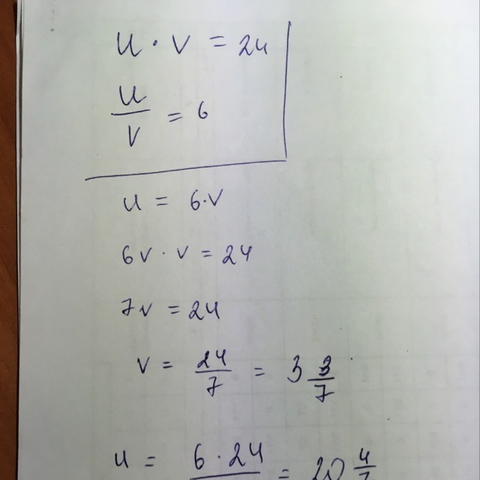 u · v = 24
u/v = 6
u = 6·v
6v · v = 24
7v = 24
v = 24/7 = 3 3/7
u = 6 · 24/ = 20 4/7